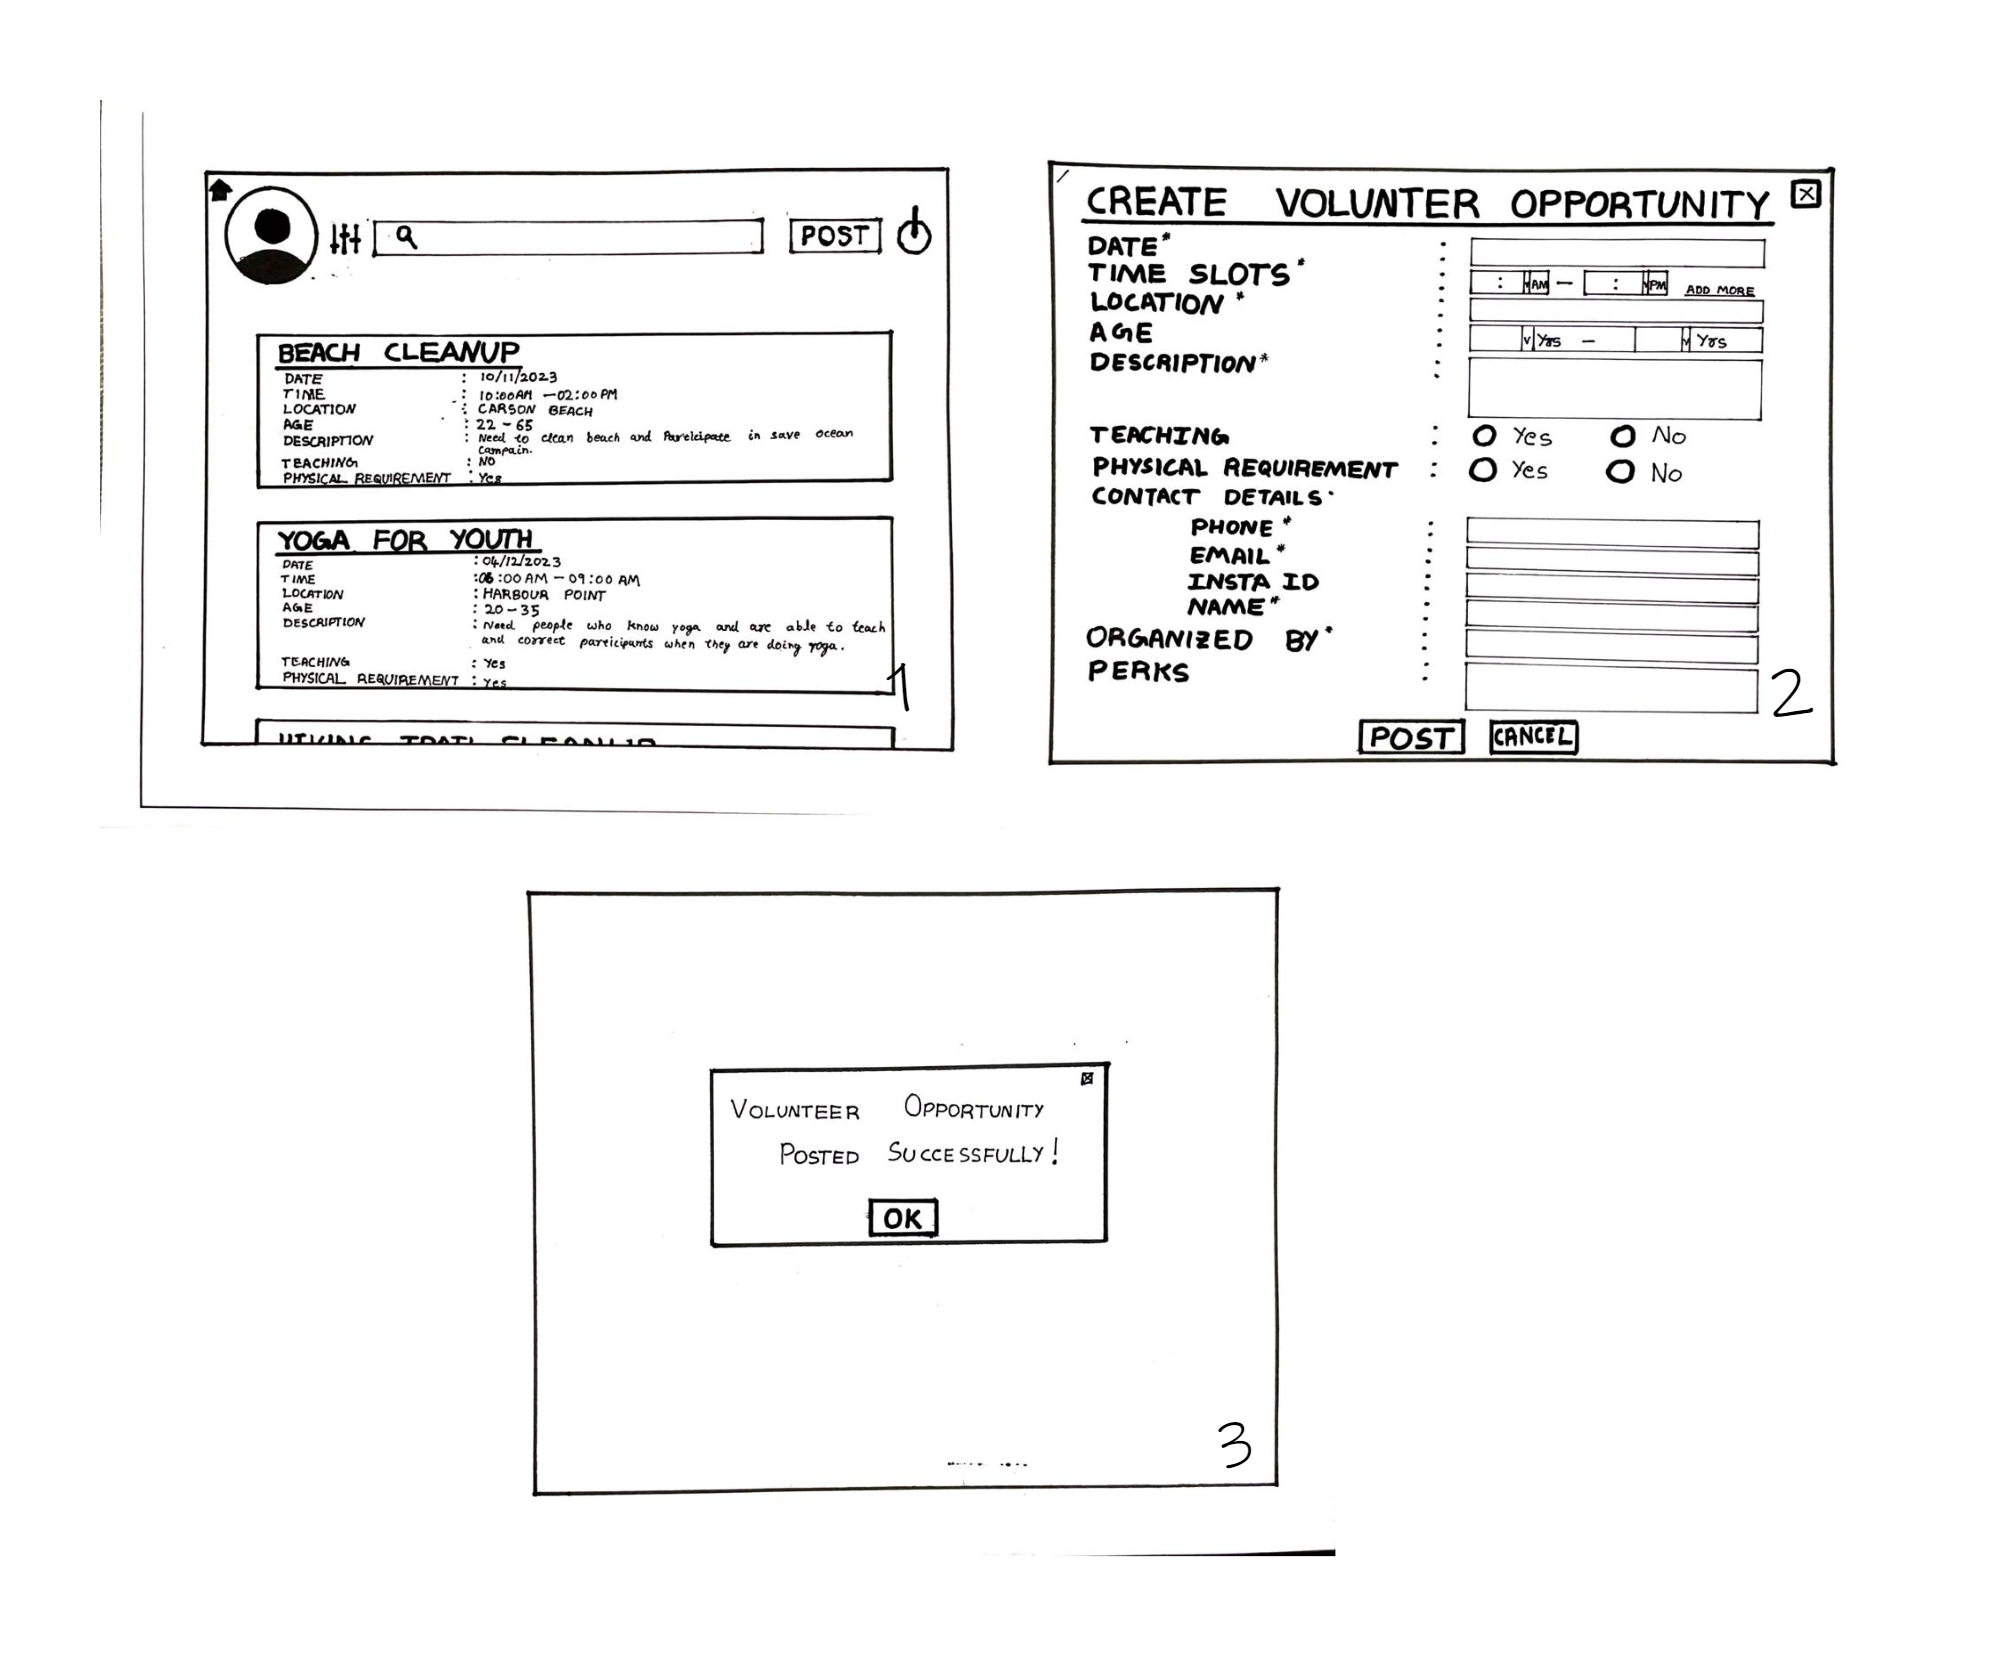 POST
BEACH CLEANUP
DATE : 10/11/2023
TIME : 10:00AM - 02:00PM
LOCATION : CARSON BEACH
AGE : 22 - 65
DESCRIPTION : Need to clean beach and Pareicipate in save ocean
campain.
TEACHING : NO
PHYSICAL REQUIREMENT : Yes
YOGA FOR YOUTH
DATE : 04/12/2023
TIME : 06:00 AM - 09:00 AM
LOCATION : HARBOUR POINT
AGE : 20-35
DESCRIPTION : Need people who know yoga and are able to teach
and correct pareicipants when they are doing yoga.
TEACHING : Yes
PHYSICAL REQUIREMENT : Yes
HIKING TRAIL CLEANUP
1
CREATE VOLUNTER OPPORTUNITY
DATE* :
TIME SLOTS* : : AM - : PM ADD MORE
LOCATION* :
AGE : Yrs - Yrs
DESCRIPTION* :
TEACHING : Yes No
PHYSICAL REQUIREMENT : Yes No
CONTACT DETAILS
PHONE* :
EMAIL* :
INSTA ID :
NAME* :
ORGANIZED BY* :
PERKS :
POST CANCEL
2
VOLUNTEER OPPORTUNITY
POSTED SUCCESSFULLY!
OK
3